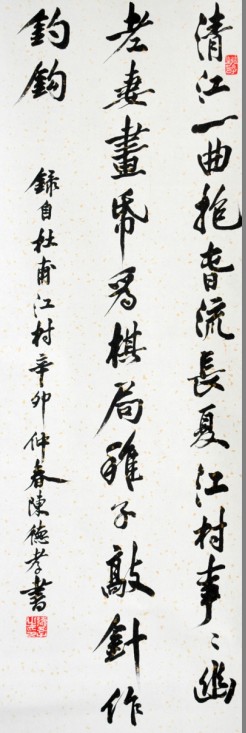 清江一曲抱村流長夏江村事〻幽
老妻畫紙為棋局稚子敲針作
釣鈎
錄自杜甫江村辛卯仲春陳德孝書